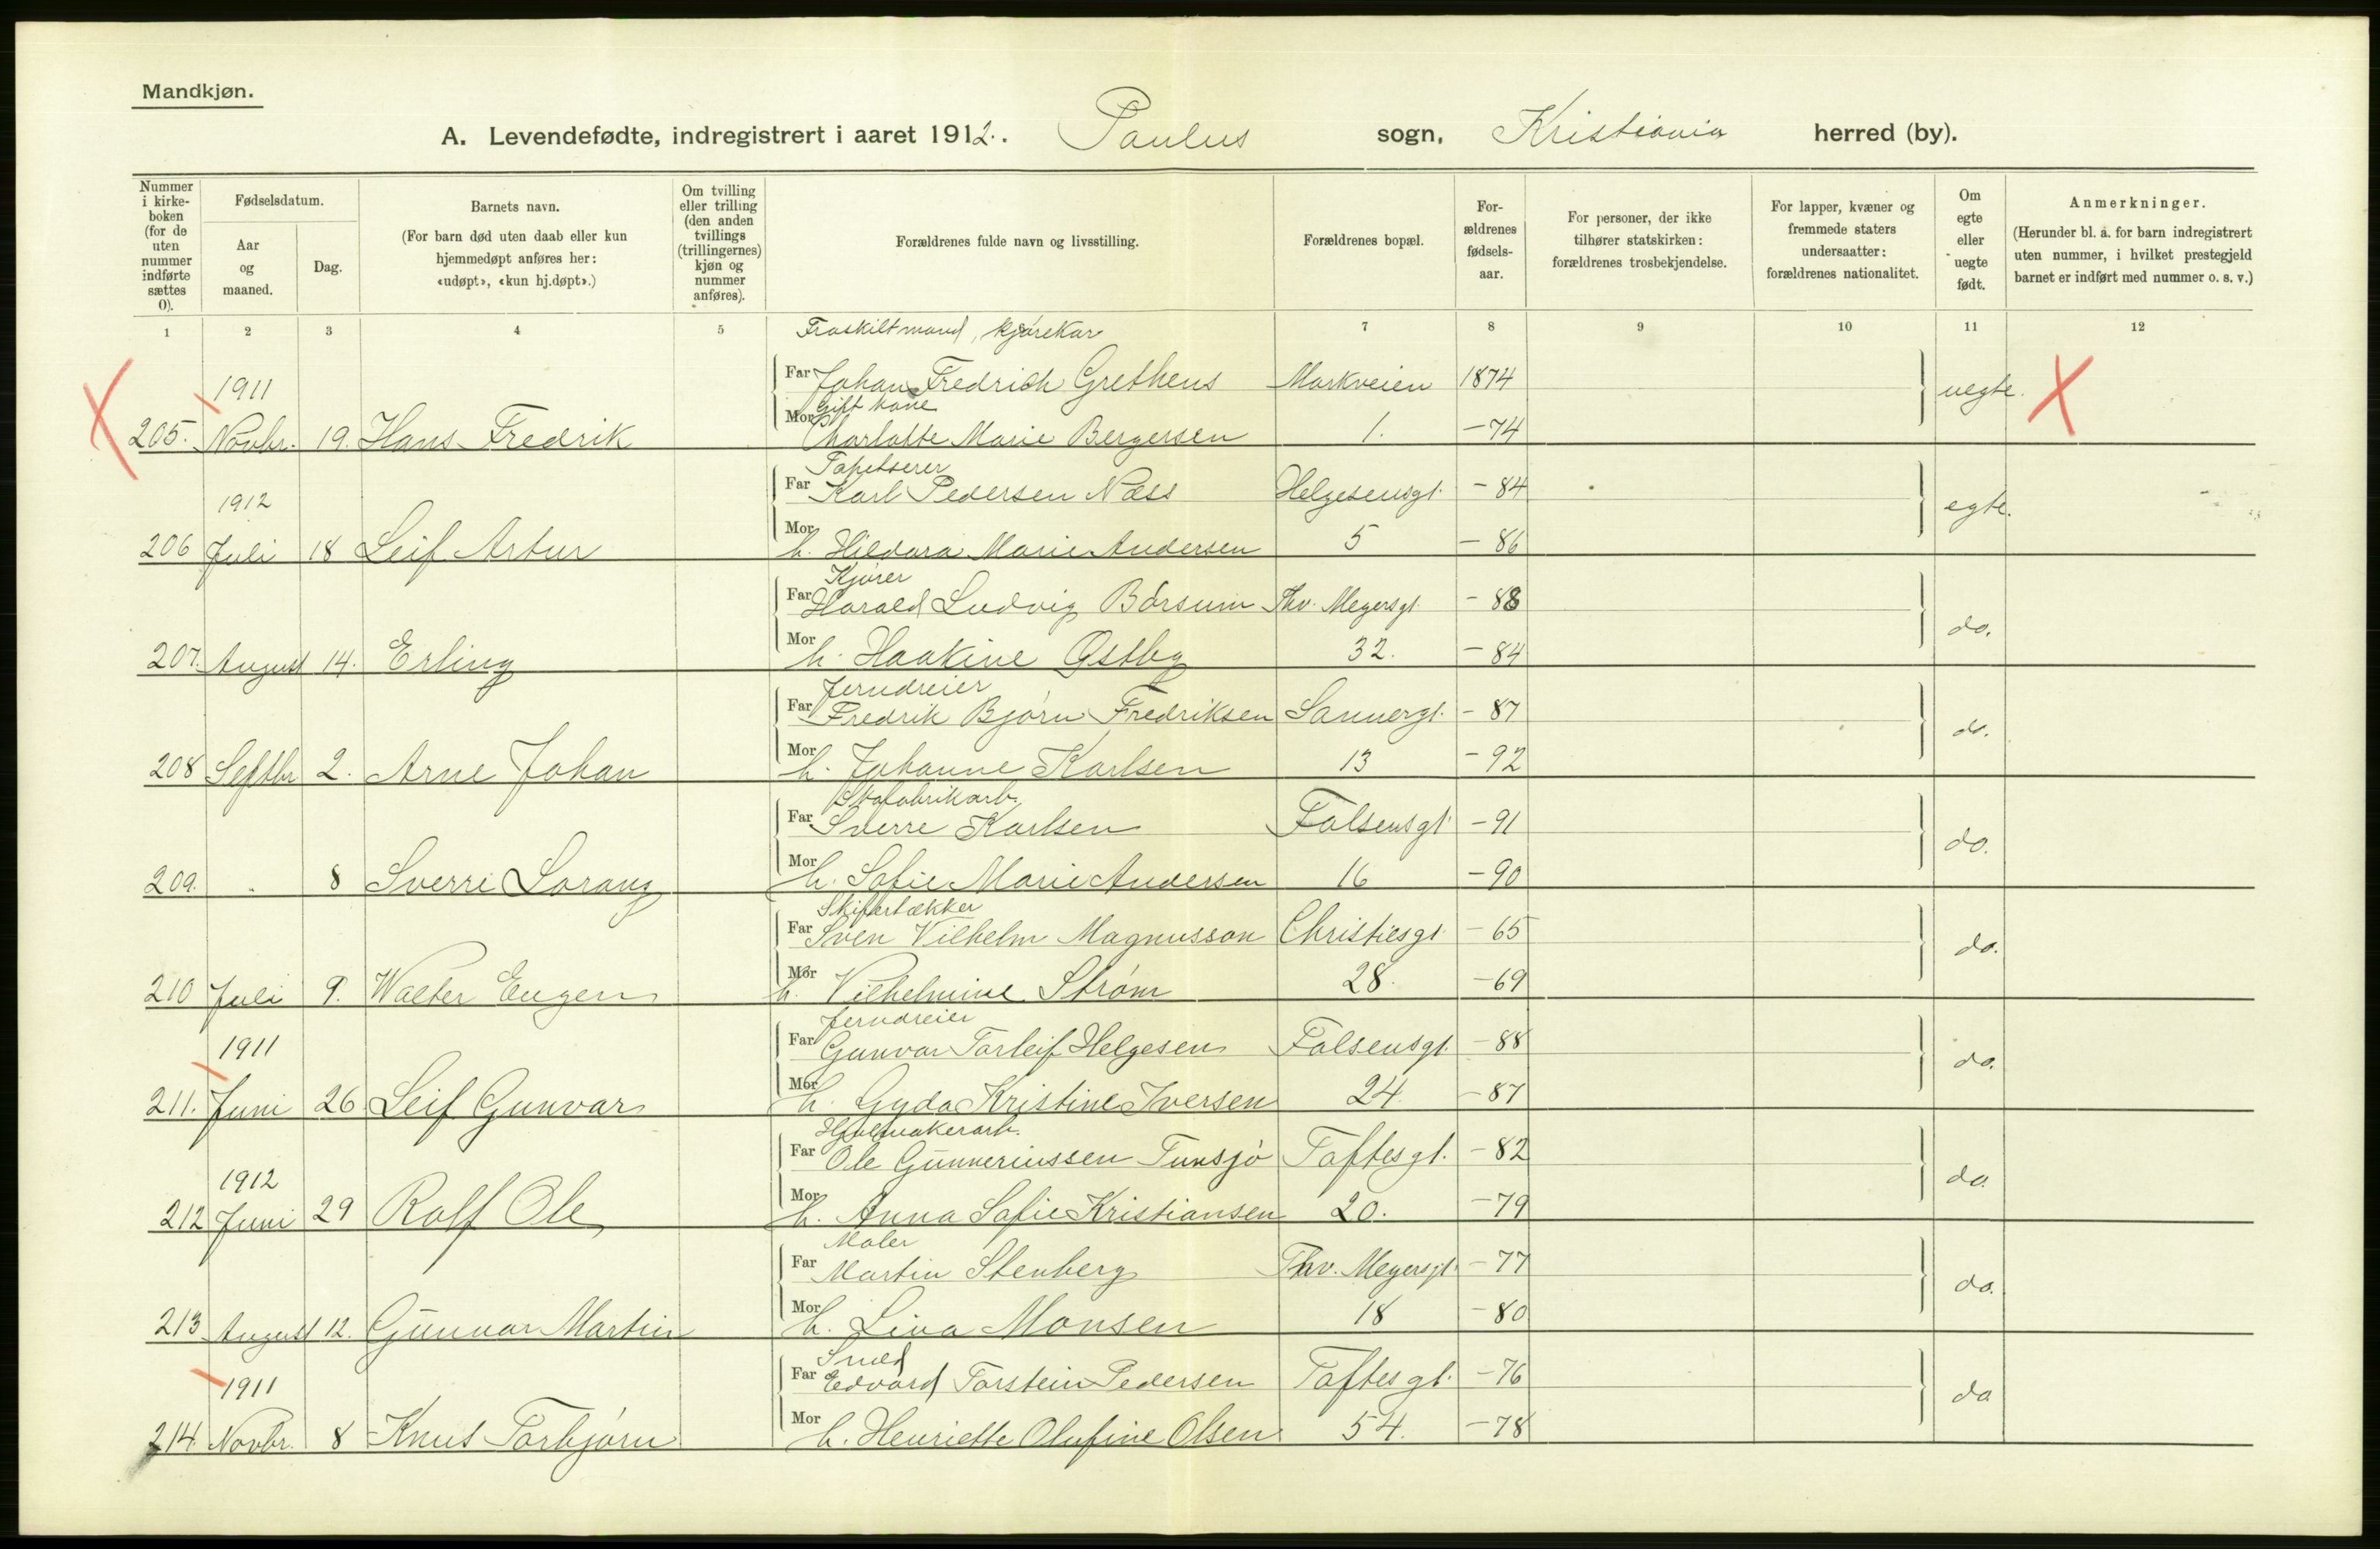 Mandkjøn.
A. Levendefødte, indregistrert i aaret 1912. Paulus sogn, Kristiania herred (by).
Nummer i kirke-boken (for de uten nummer indførte sættes 0).
Fødselsdatum.
Aar og maaned.
Dag.
Barnets navn.
(For barn død uten daab eller kun hjemmedøpt anføres her: «udøpt», «kun hj.døpt».)
Om tvilling eller trilling (den anden tvillings (trillingernes) kjøn og nummer anføres).
Forældrenes fulde navn og livsstilling.
Forældrenes bopæl.
For-ældrenes fødsels-aar.
For personer, der ikke tilhører statskirken: forældrenes trosbekjendelse.
For lapper, kvæner og fremmede staters undersaatter: forældrenes nationalitet.
Om egte eller uegte født.
Anmerkninger.
(Herunder bl. a. for barn indregistrert uten nummer, i hvilket prestegjeld barnet er indført med nummer o. s. v.)
1 2 3 4 5 7 8 9 10 11 12
Fraskilt mand, kjørekar
1911 Far Johan Fredrich Grethens Markveien 1874 uegte.
Gift kone
205. Novbr. 19. Hans Fredrik Mor Charlotte Marie Bergersen 1. -74
Tapetserer
1912 Far Karl Pedersen Næss Helgesensgt. -84 egte.
206 Juli 18 Leif Artur Mor h. Hildara Marie Andersen 5 -86
Kjører
Far Harald Ludvig Børsum Thv. Meyersgt. -88 do.
207. August 14. Erling Mor h. Haakine Østby 32. -84
Jerndreier
Far Fredrik Bjørn Fredriksen Sannergt. -87 do.
208 Septbr 2. Arne Johan Mor h. Johanne Karlsen 13 -92
Skofabrikarb.
Far Sverre Karlsen Falsensgt -91 do.
209. " 8 Sverre Lorang Mor h. Sofie Marie Andersen 16 -90
Skifertækker
Far Sven Vilhelm Magnusson Christiesgt -65 do.
210 Juli 9. Walter Eugen Mor h. Vilhelmine Strøm 28. -69
Jerndreier
1911 Far Gunvar Torleif Helgesen Falsensgt. -88 do.
211. Juni 26 Leif Gunvar Mor h. Gyda Kristine Iversen 24. -87
Hjulmakerarb.
1912 Far Ole Gunneriussen Tunsjø Toftesgt. -82 do.
212 Juni 29 Rolf Ole Mor h. Anna Sofie Kristiansen 20. -79
Maler
Far Martin Stenberg Thv. Meyersgt. -77 do.
213 August 12. Gunnar Martin Mor h. Lina Monsen 18 -80
Smed
1911 Far Edvard Torstein Pedersen Toftesgt. -76 do
214. Novbr. 8 Knut Torbjørn Mor h. Henriette Olufine Olsen 54. -78